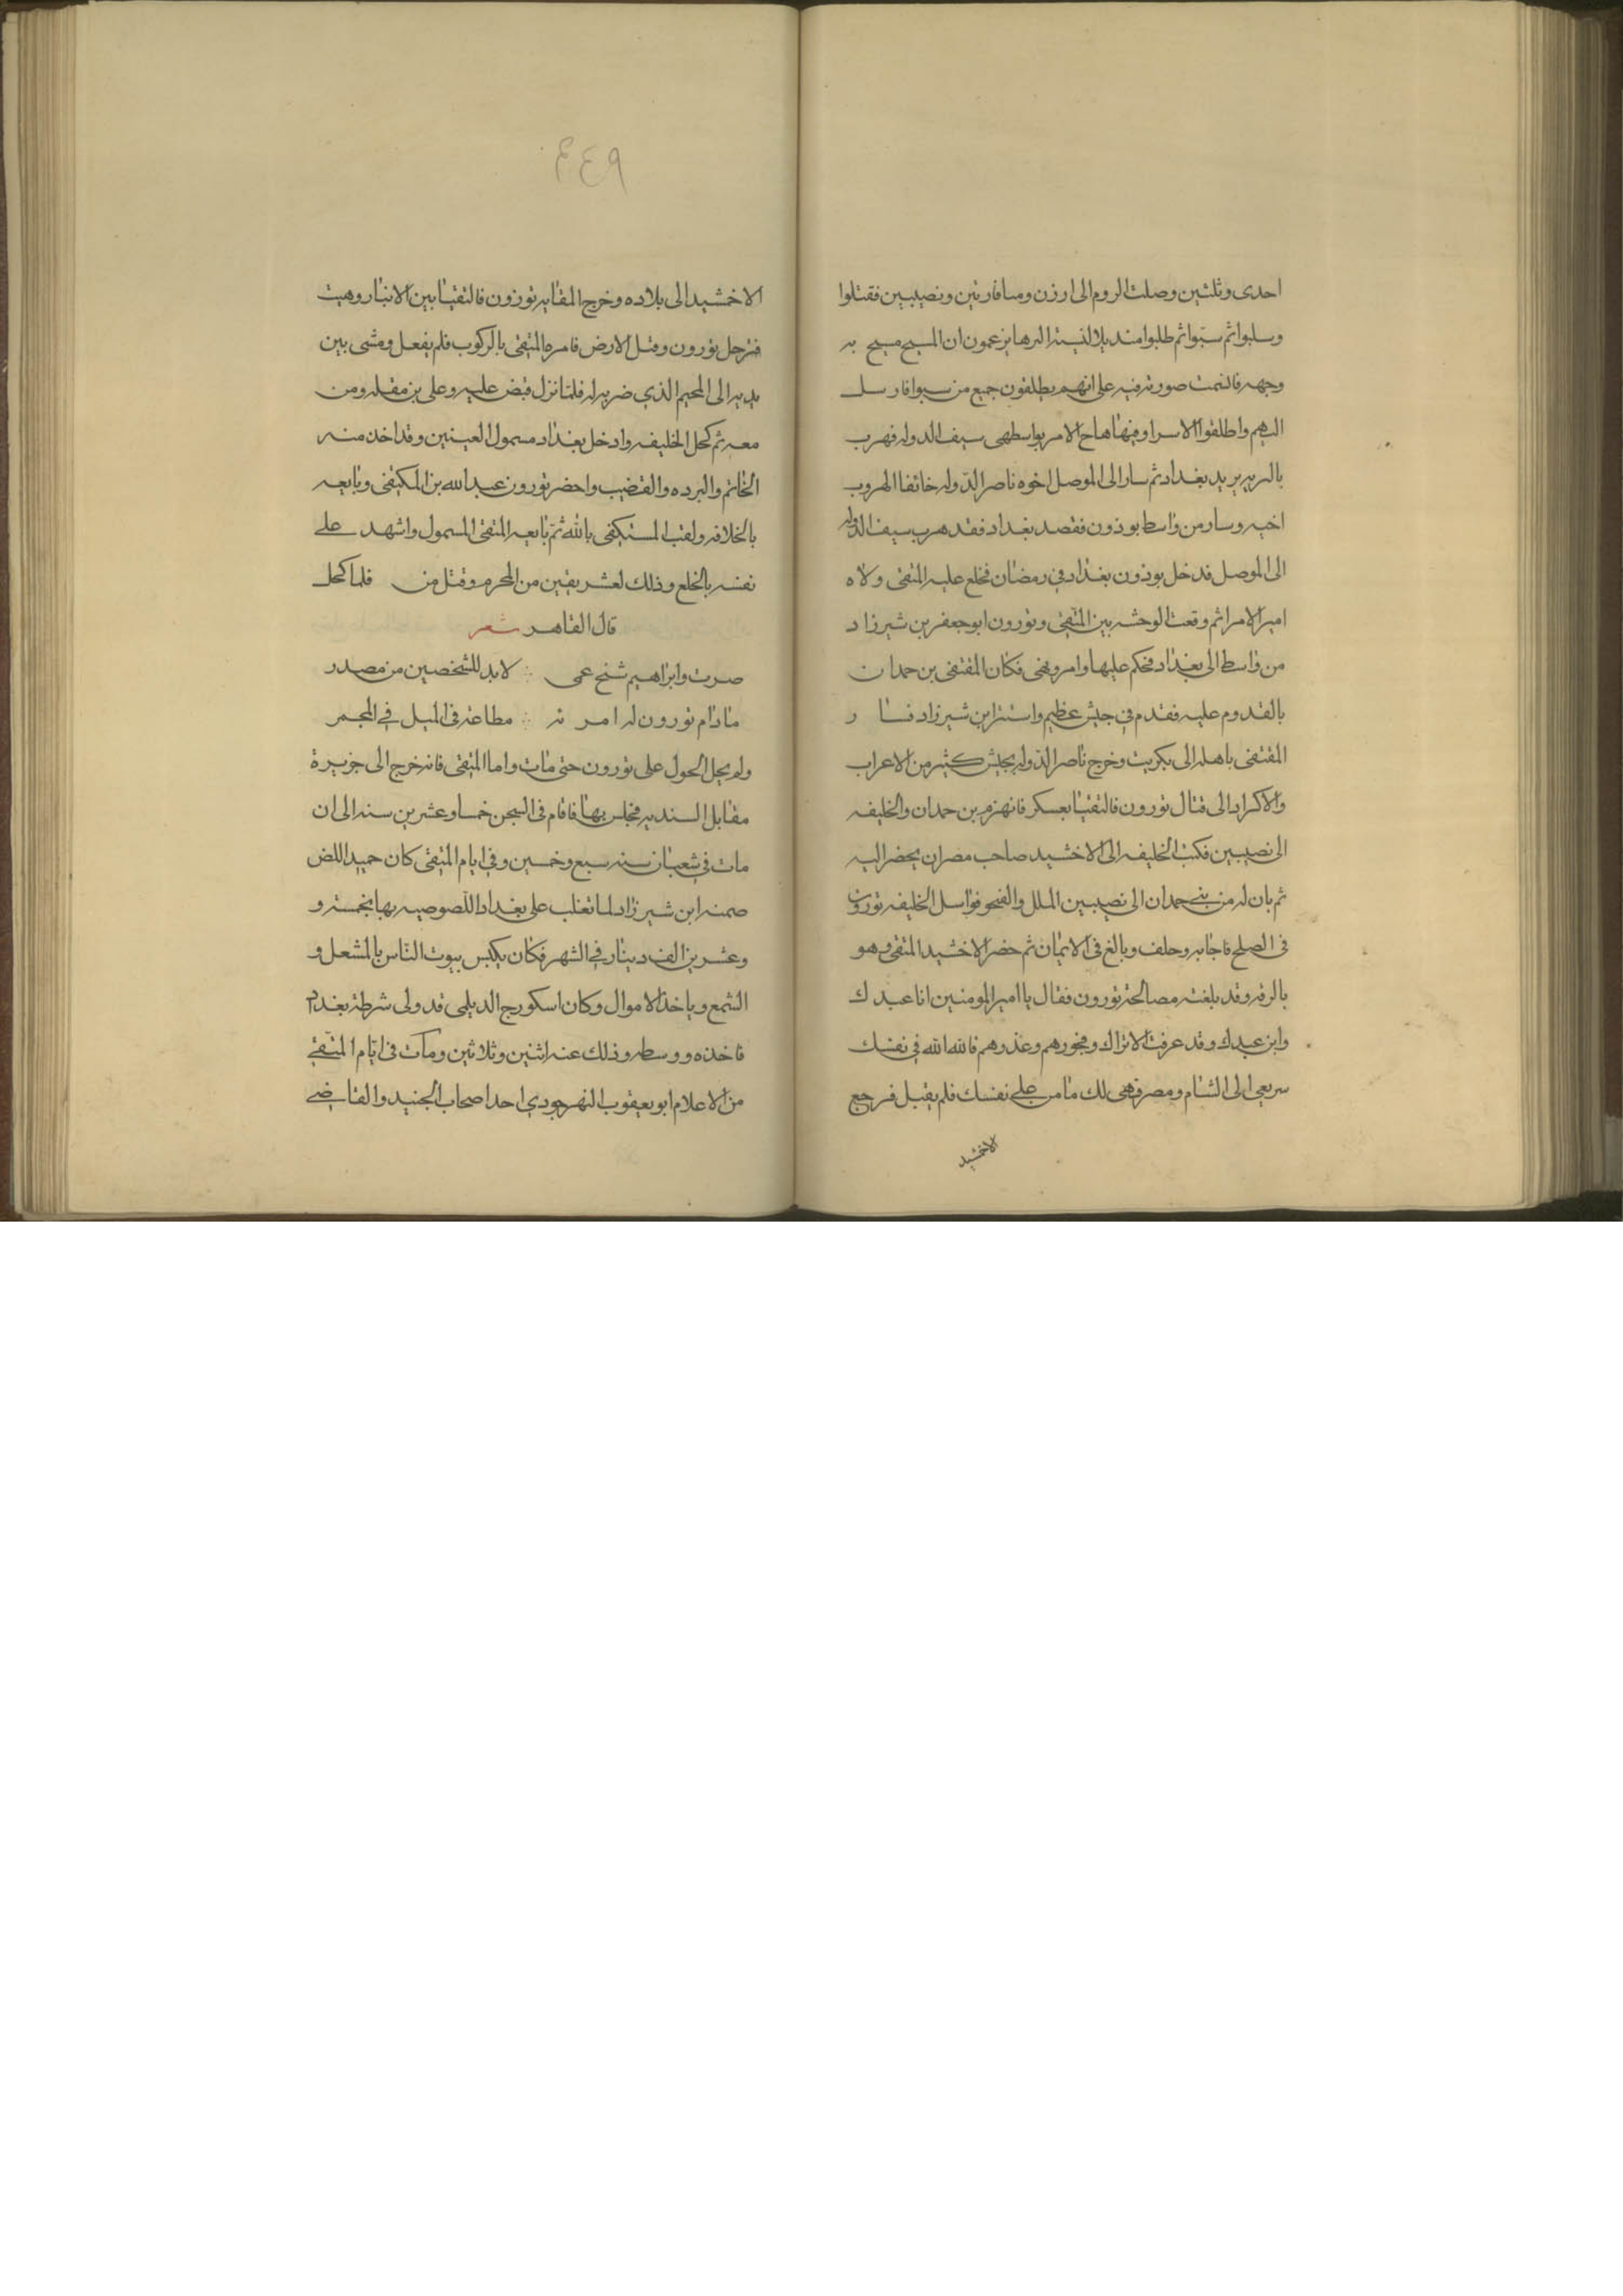 احدى وثلثين وصلت الروم الى ارزن وميافارتين ونصيبين فقتلوا
وسلبوا ثم سبوا ثم طلبوا منديلا الرها يزعمون ان المسيح مسح به
وجهه صورته فيه على انهم يطلقون جميع من سبوا فارسل
اليهم واطلقوا الاسرا وفيها هاج الامر بواسط سيف الدوله فهرب
يريد بغداد ثم سار الى الموصل اخوه ناصر الدوله خائفا لهروب
اخيه وسار من واسط بوذون فقصد بغداد فقد هرب سيف الدوله
الى الموصل فدخل بوذون بغداد في رمضان فخلع عليه المتقى ولاه
امير الامرا ثم وقعت الوحشه بين المتقى وتورون ابو جعفر بن شيرزاد
من واسط الى بغداد فحكم عليها وامر ونهى فكان المقتفى بن حمدان
بالقدوم عليه فقدم في جيش عظيم واستتر ابن شيرزاد فسار
المقتفى باهله الى بكريت وخرج ناصر الدوله بجيش كثير من الاعراب
والاكراد الى قتال تورون فالتقيا بعسكر فانهزم بن حمدان والخليفه
الى نصيبين فكتب الخليفه الى الاخشيد صاحب مصر ان يحضر اليه
ثم بان له من بني حمدان الى نصيبين الملل فواسل الخليفه تورون
فى الصلح فاجابه وحلف وبالغ فى الايمان ثم حضر الاخشيد المتقى وهو
بالرقه وقد بلغته مصالحة تورون فقال يا امير المومنين انا عبدك
وابن عبدك وقد عرفت الاتراك وفجورهم وغدرهم فالله الله في نفسك
سر معي الى الشام ومصر فهى لك تامن على نفسك فلم يقبل فرجع
الاخشيد
٤٤٩
الاخشيد الى بلاده وخرج المقايه تورزون فالتقيا بين الانبار وهيت
فترجل تورون وقبل الارض فامره المتقى بالركوب فلم يفعل ومشى بين
يديه الى المخيم الذي ضربه له فلما نزل قبض عليه وعلى بن مقله ومن
معه ثم كحل الخليفه وادخل بغداد مسمول العينين وقد اخذ منه
الخاتم والبرده والقضيب واحضر تورون عبد الله بن المكتفى وبايعه
بالخلافه ولقب المستكفى بالله ثم بايعه المتقى المسمول واشهد على
نفسه بالخلع وذلك لعشر بقين من المحرم وقتل من فلما كحل
قال القاهر شعر
صرت وابراهيم شيخ عمى ∴ لابد للشخصين من مصدر
مادام تورون له امره ∴ مطاعة فى الميل في المجمر
ولم يحل الحول على تورون حتى مات واما المتقى فانه خرج الى جزيرة
مقابل السنديه فجلس بها فاقام فى السجن خمسا وعشرين سنه الى ان
مات في شعبان سنه سبع وخمسين وفي ايام المتقى كان حميد اللص
ضمنه ابن شيرزاد لما تغلب على بغداد اللصوصيه بها بخمسة و
وعشرين الف دينار في الشهر فكان يكبس بيوت الناس بالمشعل و
الشمع وياخذ الاموال وكان اسكورج الديلمى قد ولى شرطة بغداد
فاخذه ووسطه وذلك عنه اثنين وثلاثين ومات فى ايام المتقى
من الاعلام ابو يعقوب النهرجودي احد اصحاب الجنيد والقاضي